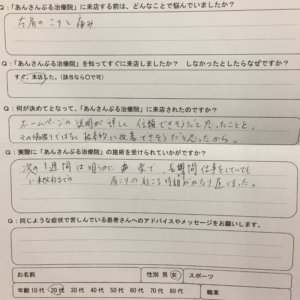 Q:「あんさんぶる治療院」に来店する前は、どんなことで悩んでいましたか?
左肩のこりと痛み
Q:「あんさんぶる治療院」を知ってすぐに来店しましたか? しなかったとしたらなぜですか?
すぐ、来店した。(該当なら○で可)
Q:何が決めてとなって、「あんさんぶる治療院」に来店されたのですか?
ホームページの説明が詳しく、信頼できそうだと思ったことと、
その場限りではなく、根本的に改善できそうだと思ったから。
Q:実際に「あんさんぶる治療院」の施術を受けられていかがですか?
次の1週間は明らかに 楽で、長時間仕事をしていても
肩こりの起こる時間がかなり遅くなった。
Q:同じような症状で苦しんでいる患者さんへのアドバイスやメッセージをお願いします。
お名前 性別 男 女 スポーツ
年齢 10代 20代 30代 40代 50代 60代 70代 80代 職業